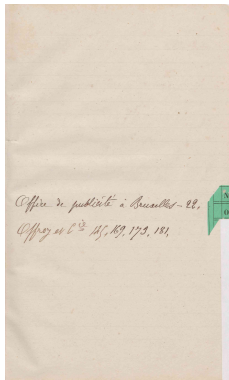 Office de publicité à Bruxelles - 22.
Offroy et Cie 145, 169, 179, 181.